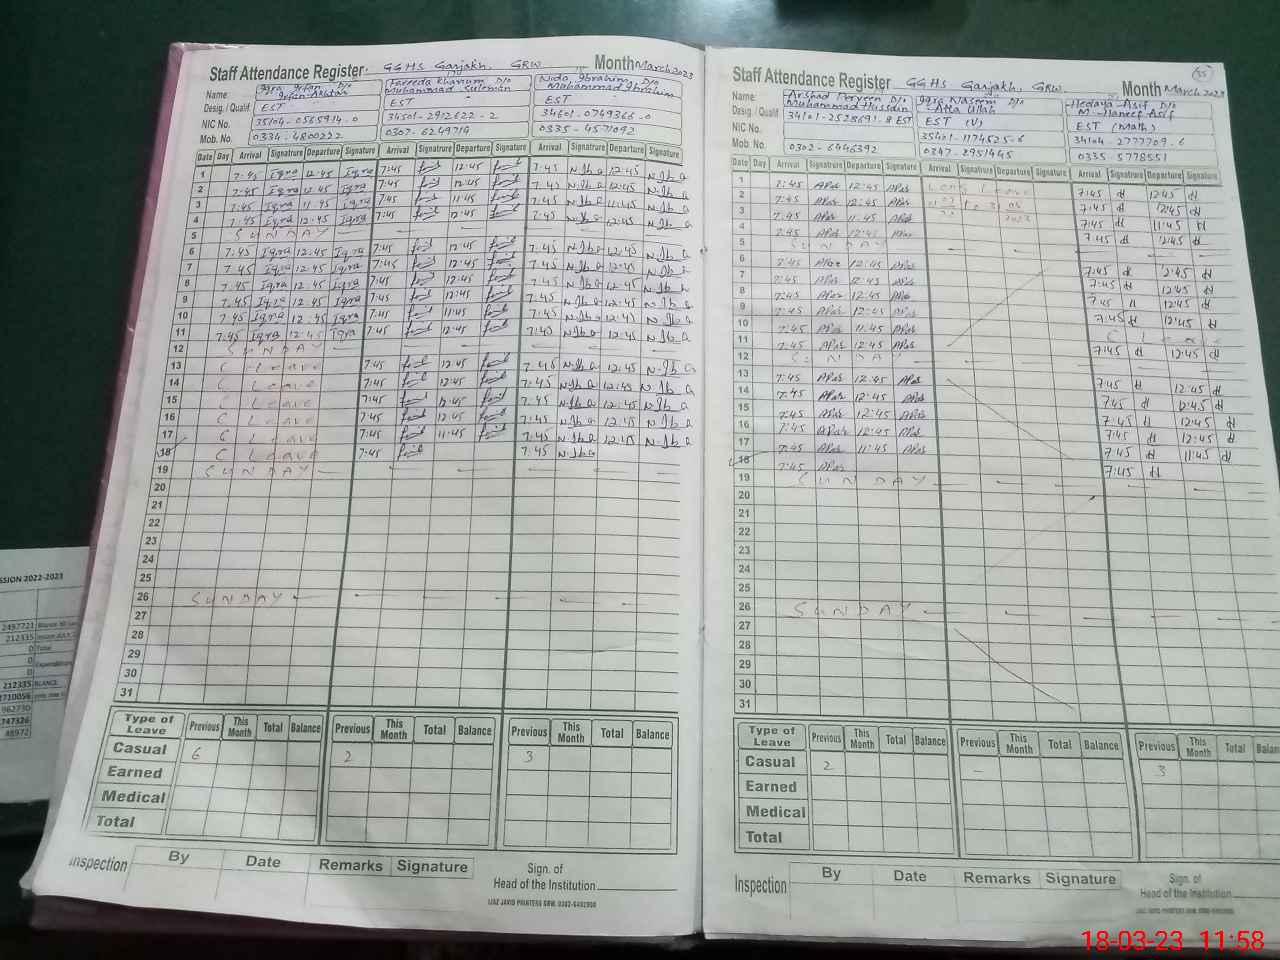 Staff Attendance Register GGHS Garjakh. GRW. Month March 2023
Name: Iqra Irfan D/o Irfan Akhtar Fareeda Khanum D/o Muhammad Suleman Nida Ibrahim D/o Muhammad Ibrahim
Desig. / Qualif EST EST EST
NIC No. 35104-0565914-0 34501-2912622-2 34601-0749366-0
Mob. No. 0334-4800222 0307-6249719 0335-4571092
Date Day Arrival Signature Departure Signature Arrival Signature Departure Signature Arrival Signature Departure Signature
1 7:45 Iqra 12:45 Iqra 7:45 12:45 7:45 N.Iba 12:45 N.Iba
2 7:45 Iqra 12:45 Iqra 7:45 12:45 7:45 N.Iba 12:45 N.Iba
3 7:45 Iqra 11:45 Iqra 7:45 11:45 7:45 N.Iba 11:45 N.Iba
4 7:45 Iqra 12:45 Iqra 7:45 12:45 7:45 N.Iba 12:45 N.Iba
5 SUNDAY
6 7:45 Iqra 12:45 Iqra 7:45 12:45 7:45 N.Iba 12:45 N.Iba
7 7:45 Iqra 12:45 Iqra 7:45 12:45 7:45 N.Iba 12:45 N.Iba
8 7:45 Iqra 12:45 Iqra 7:45 12:45 7:45 N.Iba 12:45 N.Iba
9 7:45 Iqra 12:45 Iqra 7:45 12:45 7:45 N.Iba 12:45 N.Iba
10 7:45 Iqra 12:45 Iqra 7:45 11:45 7:45 N.Iba 12:45 N.Iba
11 7:45 Iqra 12:45 Iqra 7:45 12:45 7:45 N.Iba 12:45 N.Iba
12 SUNDAY
13 C Leave 7:45 12:45 7:45 N.Iba 12:45 N.Iba
14 C Leave 7:45 12:45 7:45 N.Iba 12:45 N.Iba
15 C Leave 7:45 12:45 7:45 N.Iba 12:45 N.Iba
16 C Leave 7:45 12:45 7:45 N.Iba 12:45 N.Iba
17 C Leave 7:45 11:45 7:45 N.Iba 12:15 N.Iba
18 C Leave 7:45 7:45 N.Iba
19 SUNDAY
20
21
22
23
24
25
26 SUNDAY
27
28
29
30
31
Type of Leave Previous This Month Total Balance Previous This Month Total Balance Previous This Month Total Balance
Casual 6 2 3
Earned
Medical
Total
Inspection By Date Remarks Signature Sign. of Head of the Institution
IJAZ JAVID PRINTERS GRW. 0302-6492900
Staff Attendance Register GGHS Garjakh, GRW. Month March 2023
35
Name: Arshad Perveen D/o Muhammad Hussain Iqra Naseem D/o Atta Ullah Hedaya Asif D/o M. Haneef Asif
Desig. / Qualif 34101-2528691-8 EST EST (V) EST (Math)
NIC No. 35401-1174525-6 34104-2777709-6
Mob. No. 0302-6446392 0347-2951445 0335-5778551
Date Day Arrival Signature Departure Signature Arrival Signature Departure Signature Arrival Signature Departure Signature
1 7:45 APer 12:45 APer Long Leave 7:45 12:45
2 7:45 APer 12:45 APer 7:45 12:45
3 7:45 APer 11:45 APer 7:45 11:45
4 7:45 APer 12:45 APer 7:45 12:45
5 SUNDAY
6 7:45 APer 12:45 APer 7:45 12:45
7 7:45 APer 12:45 APer 7:45 12:45
8 7:45 APer 12:45 APer 7:45 12:45
9 7:45 APer 12:45 APer 7:45 12:45
10 7:45 APer 11:45 APer C Leave
11 7:45 APer 12:45 APer 7:45 12:45
12 SUNDAY
13 7:45 APer 12:45 APer 7:45 12:45
14 7:45 APer 12:45 APer 7:45 12:45
15 7:45 APer 12:45 APer 7:45 12:45
16 7:45 APer 12:45 APer 7:45 12:45
17 7:45 APer 11:45 APer 7:45 11:45
18 7:45 APer 7:45
19 SUNDAY
20
21
22
23
24
25
26 SUNDAY
27
28
29
30
31
Type of Leave Previous This Month Total Balance Previous This Month Total Balance Previous This Month Total Balance
Casual 2 - 3
Earned
Medical
Total
Inspection By Date Remarks Signature Sign. of Head of the Institution
SSION 2022-2023
2497721
212335
0 Total
0
0
212335 BLANCE
2710056
962730
747326
48972
18-03-23 11:58